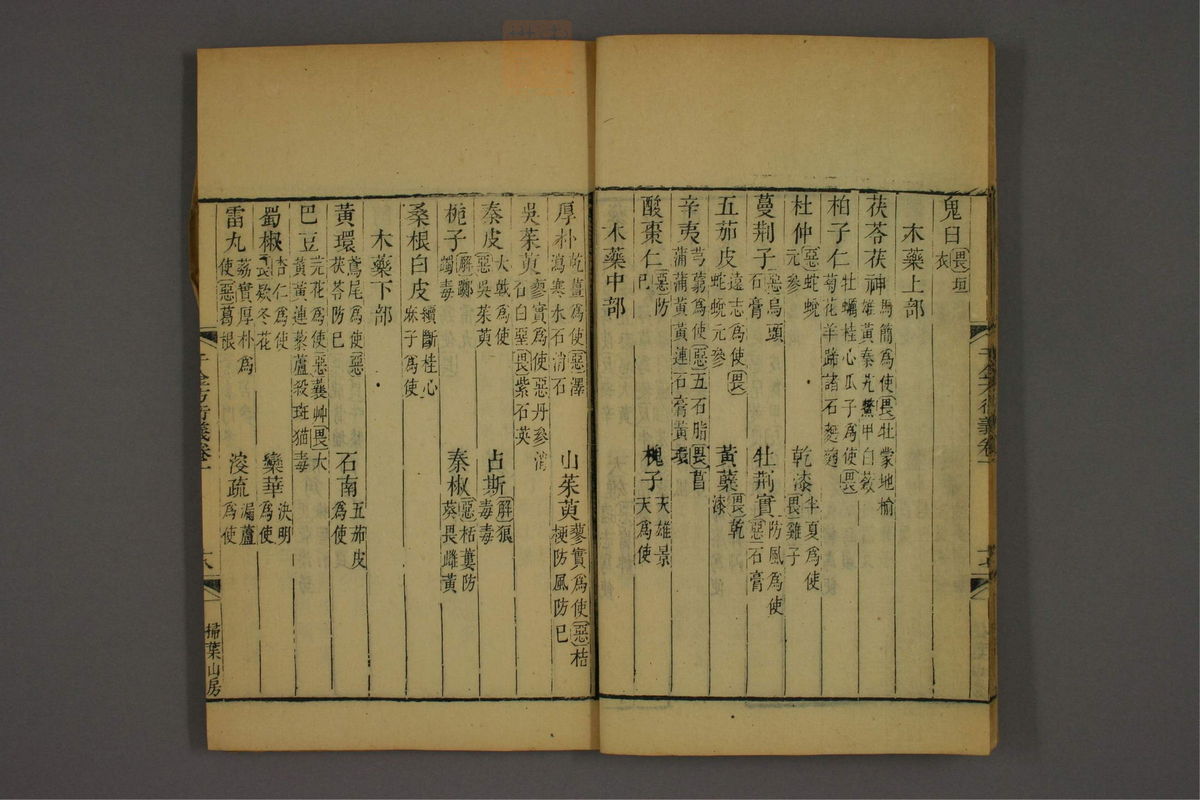 鬼臼畏垣衣
木藥上部
茯苓茯神馬簡為使畏牡蒙地榆雄黃秦艽鱉甲白蘞
柏子仁牡蠣桂心瓜子為使畏菊花羊蹄諸石麪麴
杜仲惡蛇蛻元參 乾漆半夏為使畏雞子
蔓荊子惡烏頭石膏 牡荊實防風為使惡石膏
五茄皮遠志為使畏蛇蛻元參 黃蘗畏乾漆
辛夷芎藭為使惡五石脂畏菖蒲蒲黃黃連石膏黃環
酸棗仁惡防已 槐子天雄景天為使
木藥中部
厚朴乾薑為使惡澤瀉寒水石消石 山茱萸蓼實為使惡桔梗防風防已
吳茱萸蓼實為使惡丹參消石白堊畏紫石英
秦皮大戟為使惡吳茱萸 占斯解狼毒毒
梔子解躑躅毒 秦椒惡栝蔞防葵畏雌黃
桑根白皮續斷桂心麻子為使
木藥下部
黃環鳶尾為使惡茯苓防已 石南五茄皮為使
巴豆元花為使惡蘘艸畏大黃黃連藜蘆殺斑猫毒
蜀椒杏仁為使畏欵冬花 欒華決明為使
雷丸荔實厚朴為使惡葛根 溲疏漏蘆為使
千金方衍義卷一
掃葉山房